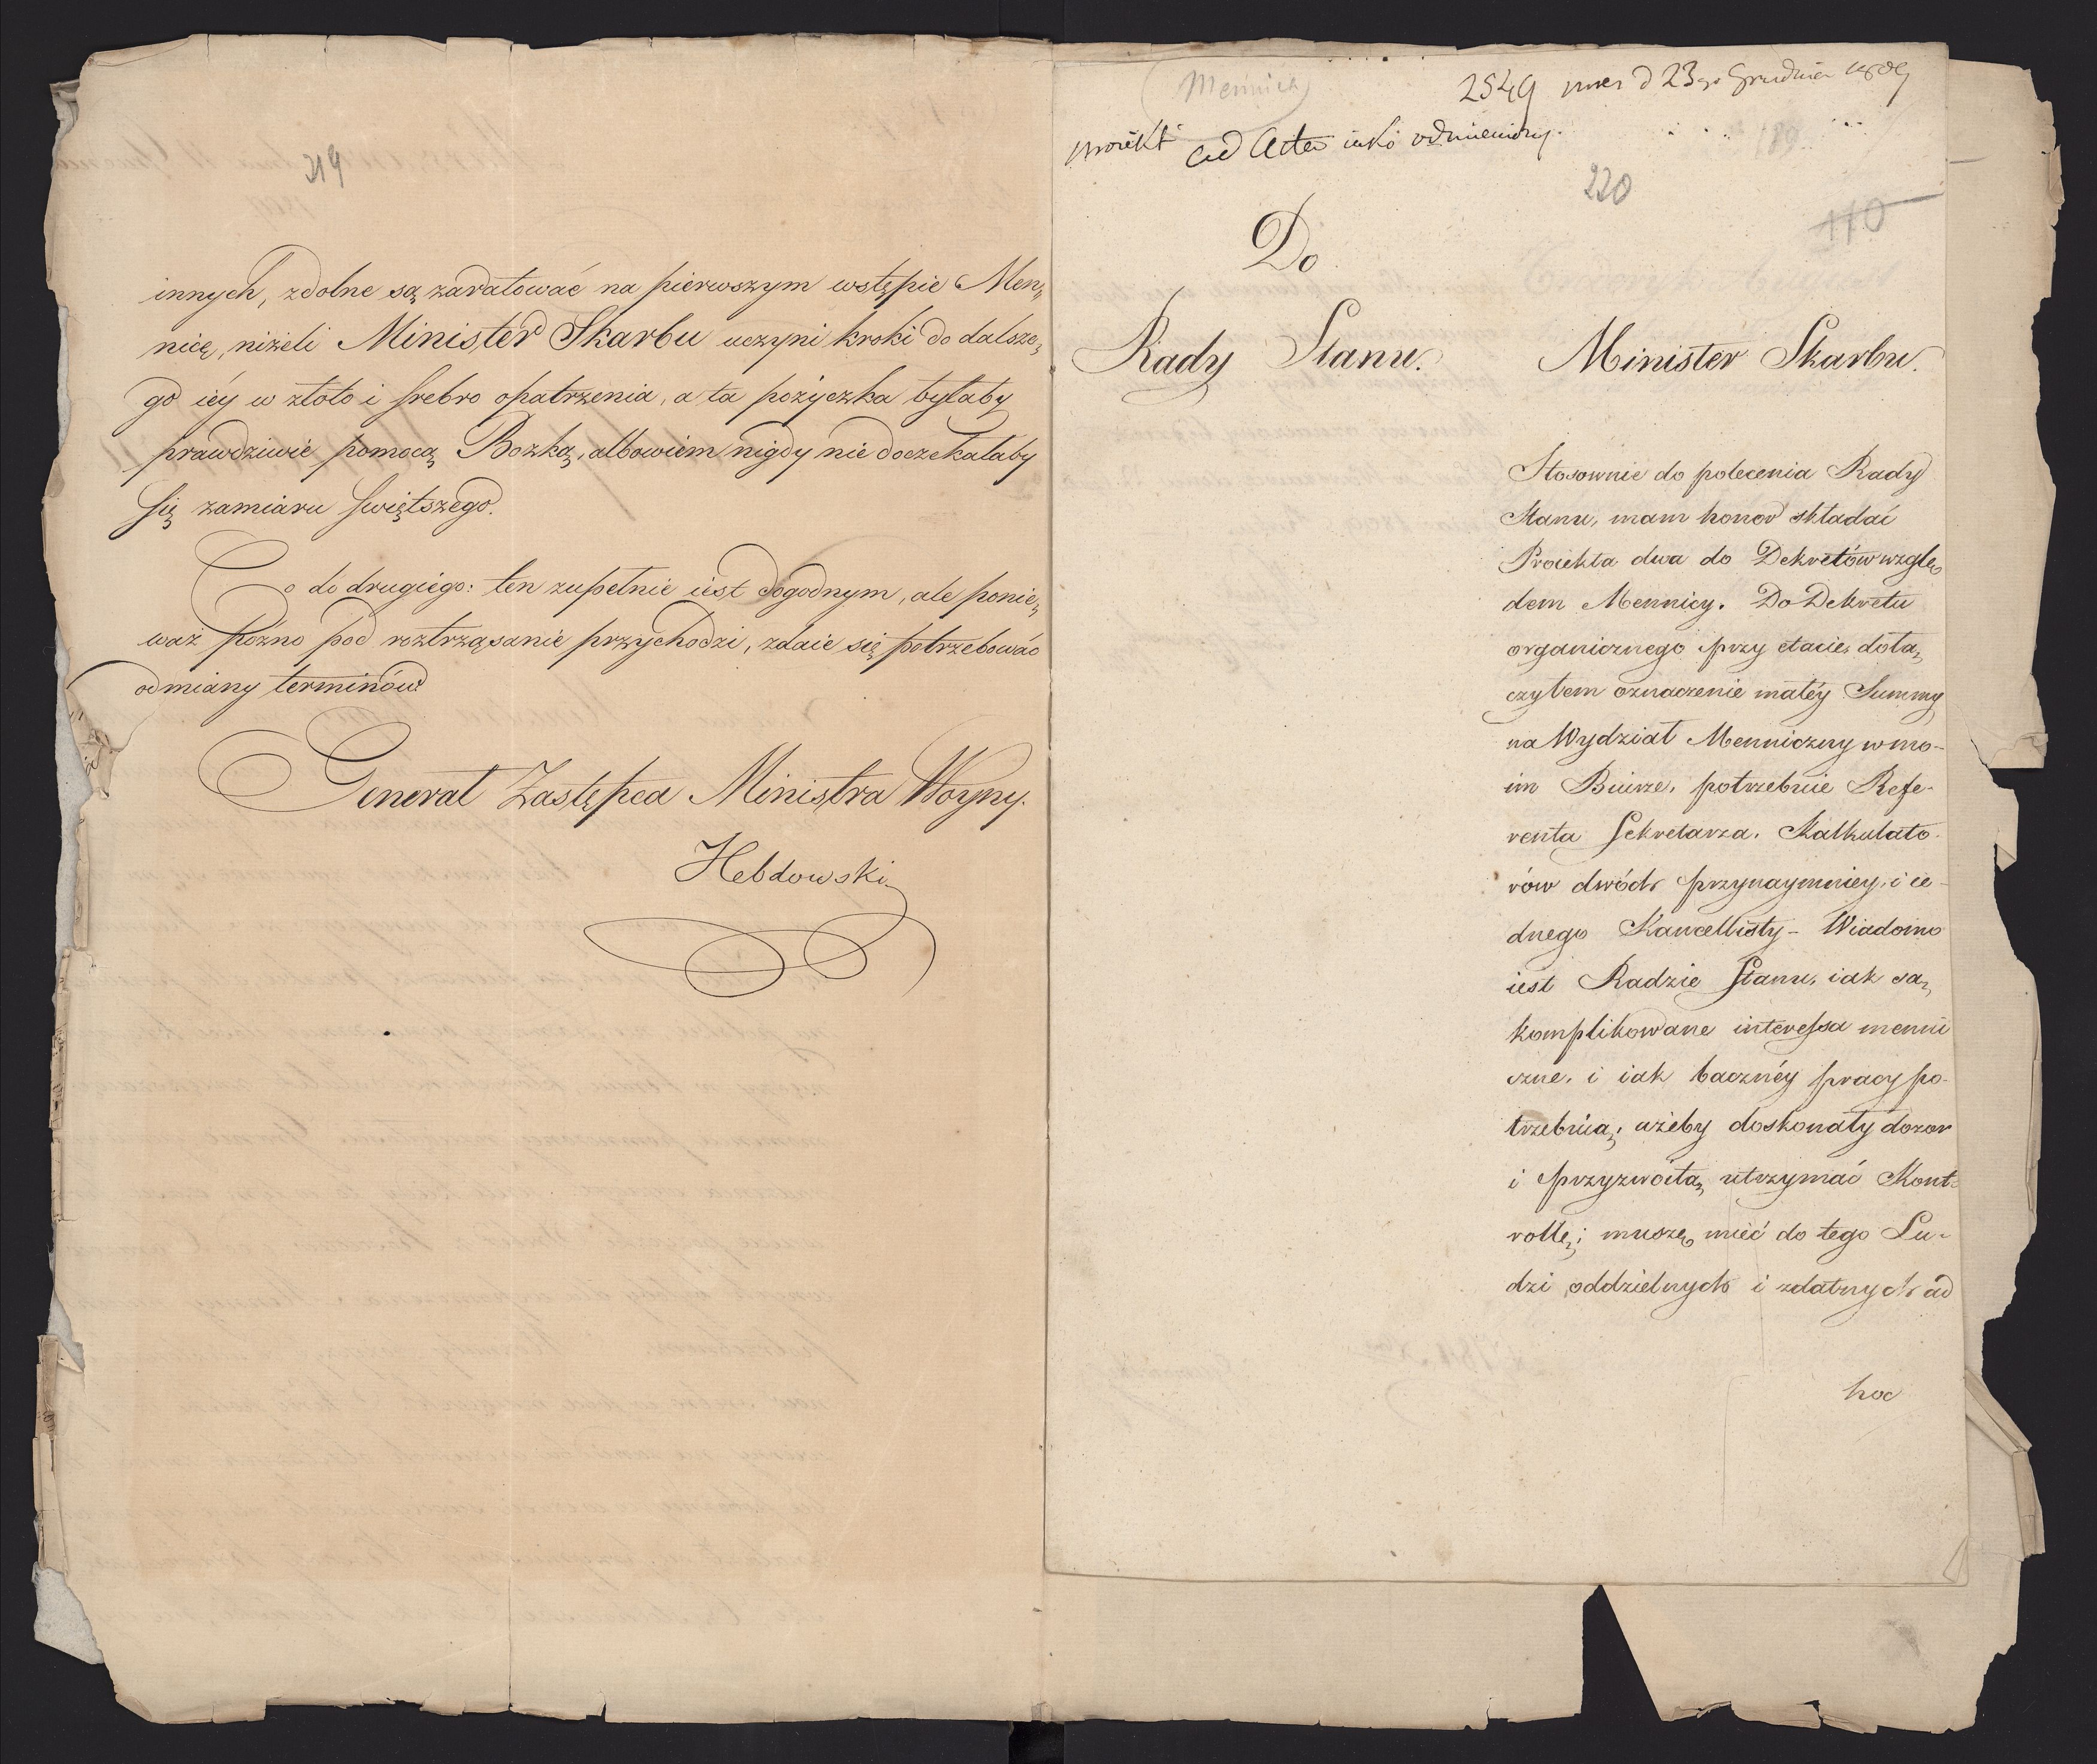 219
innych, zdolne są zaratować na pierwszym wstępie Men„
nicę, niżeli Minister Skarbu uczyni kroki do dalsze„
go iéy w złoto i srebro opatrzenia, a ta pożyczka byłaby
prawdziwie pomocą Bozką, albowiem nigdy nie doczekałaby
się zamiaru swiętszego.
Co do drugiego: ten zupełnie iest dogodnym, ale ponie„
waż pózno pod roztrząsanie przychodzi, zdaie się potrzebować
odmiany terminów
Generał Zastępca Ministra Woyny.
Hebdowski
Mennica
2549 d 23go Grudnia 1809
proiekt ad Acta iako odmieniony.
189
220
110
Do
Rady Stanu.
Minister Skarbu.
Stosownie do polecenia Rady
Stanu, mam honor składać
Proiekta dwa do Dekretów wzglę
dem Mennicy. Do Dekretu
organicznego przy etacie dołą„
czyłem oznaczenie małéy Summy
na Wydział Menniczny w mo-
im Biurze, potrzebuie Refe-
renta Sekretarza, Kalkulato-
rów dwóch przynaymniey, i ie-
dnego Kancellisty - Wiadomo
iest Radzie Stanu, iak są„
komplikowane interessa menni
czne, i iak bacznéy pracy po-
trzebuią; ażeby doskonały dozor
i przyzwoitą utrzymać Kont-
rollę; muszę mieć do tego Lu-
dzi oddzielnych i zdatnych ad
hoc